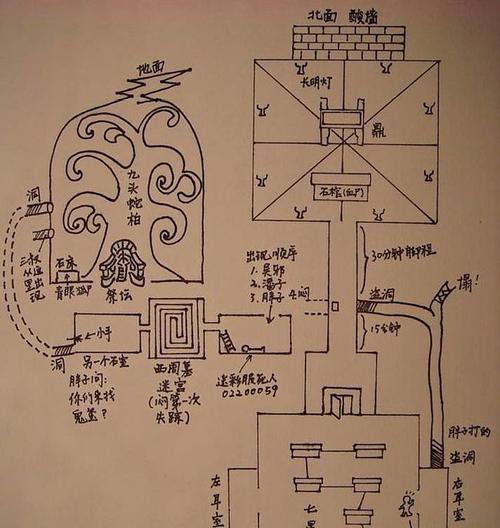 北面 酸墙
地面
长明灯
鼎
九头蛇柏
洞
石棺(血尸)
石床
青眼狐
祭坛
三叔
从这
里出
现
出现顺序
1.吴邪
2.潘子
3.胖子 4.闷
30分钟脚程
盗洞
塌!
15分钟
小手
洞
另一个石室
胖子问:
你们来找
鬼玺?
西周墓
迷宫
(闷第一次
失踪)
迷彩服死人
02200059
胖子打的
盗洞
左耳室
七星
右耳室